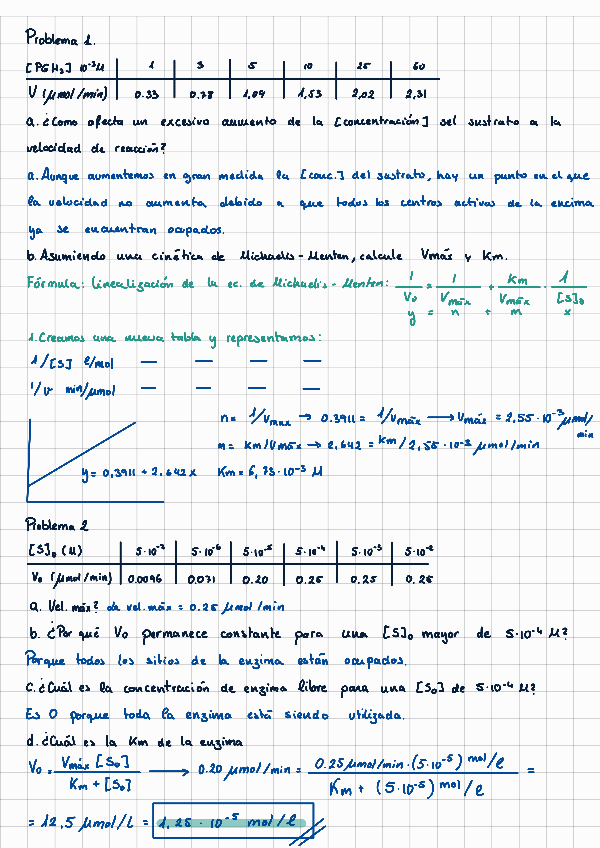 Problema 1.
[PGH₂] 10⁻³M 1 3 5 10 25 50
V (μmol/min) 0.33 0.78 1,09 1,53 2,02 2,31
a. ¿Como afecta un excesivo aumento de la [concentración] sel sustrato a la
velocidad de reacción?
a. Aunque aumentemos en gran medida la [conc.] del sustrato, hay un punto en el que
la velocidad no aumenta debido a que todos los centros activos de la encima
ya se encuentran ocupados.
b. Asumiendo una cinética de Michaelis-Menten, calcule Vmáx y Km.
Fórmula: Linealización de la ec. de Michaelis-Menten: 1/V₀ = 1/Vmáx + Km/Vmáx · 1/[S]₀
y = n + m x
1. Creamos una nueva tabla y representamos:
1/[S] l/mol — — — —
1/v min/μmol — — — —
n = 1/Vmax → 0.3911 = 1/Vmáx → Vmáx = 2,55·10⁻³ μmol/min
m = Km/Vmáx → 2,642 = Km/2,55·10⁻³ μmol/min
y = 0,3911 + 2.642x Km = 6,73·10⁻³ M
Problema 2
[S]₀ (M) 5·10⁻⁷ 5·10⁻⁶ 5·10⁻⁵ 5·10⁻⁴ 5·10⁻³ 5·10⁻²
V₀ (μmol/min) 0.0096 0.071 0.20 0.25 0.25 0.25
a. Vel. máx? da vel. máx = 0.25 μmol/min
b. ¿Por qué V₀ permanece constante para una [S]₀ mayor de 5·10⁻⁴ M?
Porque todos los sitios de la enzima están ocupados.
c. ¿Cuál es la concentración de enzima libre para una [S₀] de 5·10⁻⁴ M?
Es 0 porque toda la enzima está siendo utilizada.
d. ¿Cuál es la Km de la enzima
V₀ = Vmáx [S₀] / Km + [S₀] → 0.20 μmol/min = 0.25 μmol/min · (5·10⁻⁵) mol/l / Km + (5·10⁻⁵) mol/l =
= 12,5 μmol/L = 1,25 · 10⁻⁵ mol/l